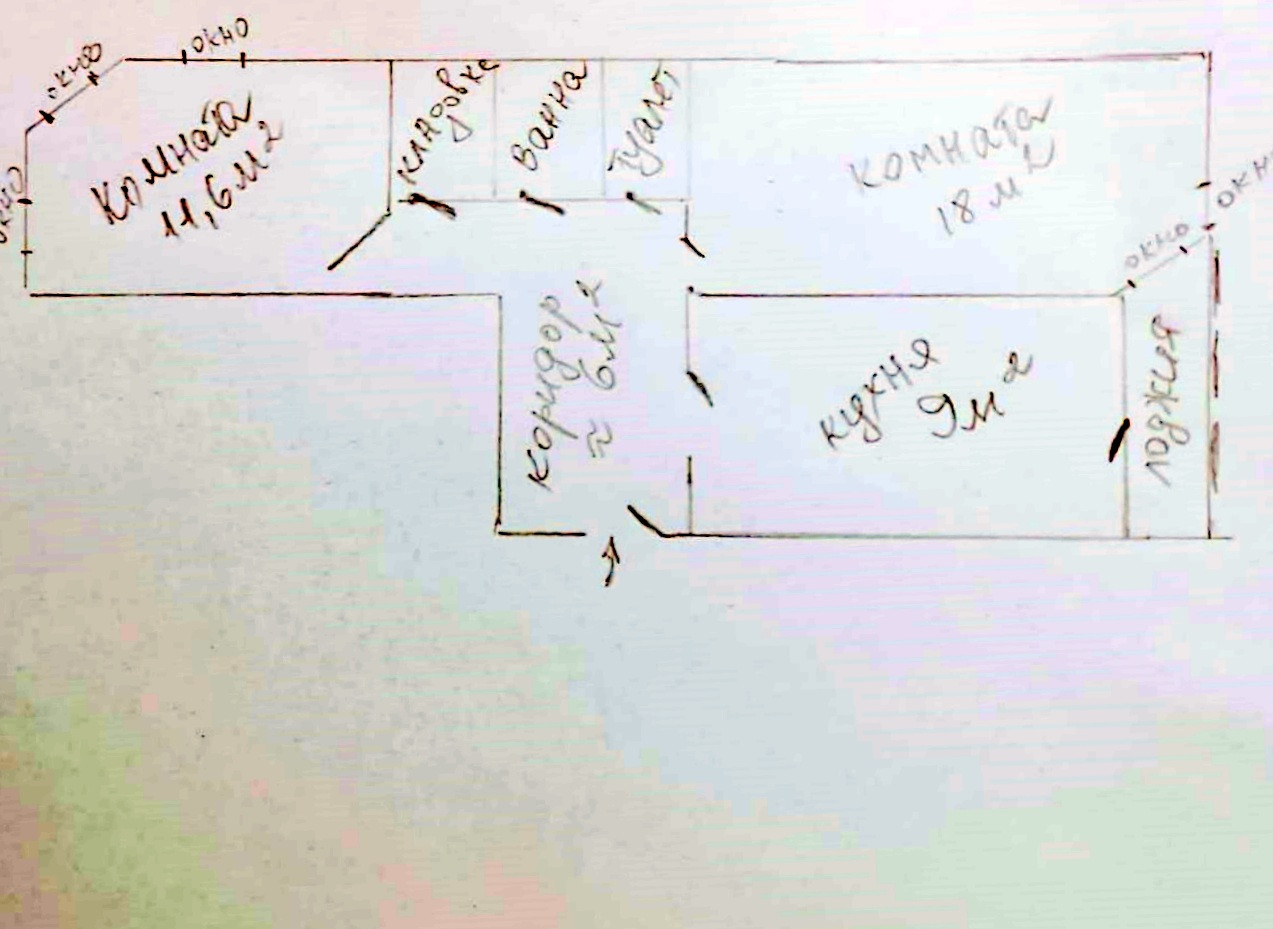 окно
окно
окно
Комната
11,6м²
кладовка
Ванна
Туалет
комната
18 м²
окно
окно
коридор
≈ 6м²
кухня
9м²
лоджия